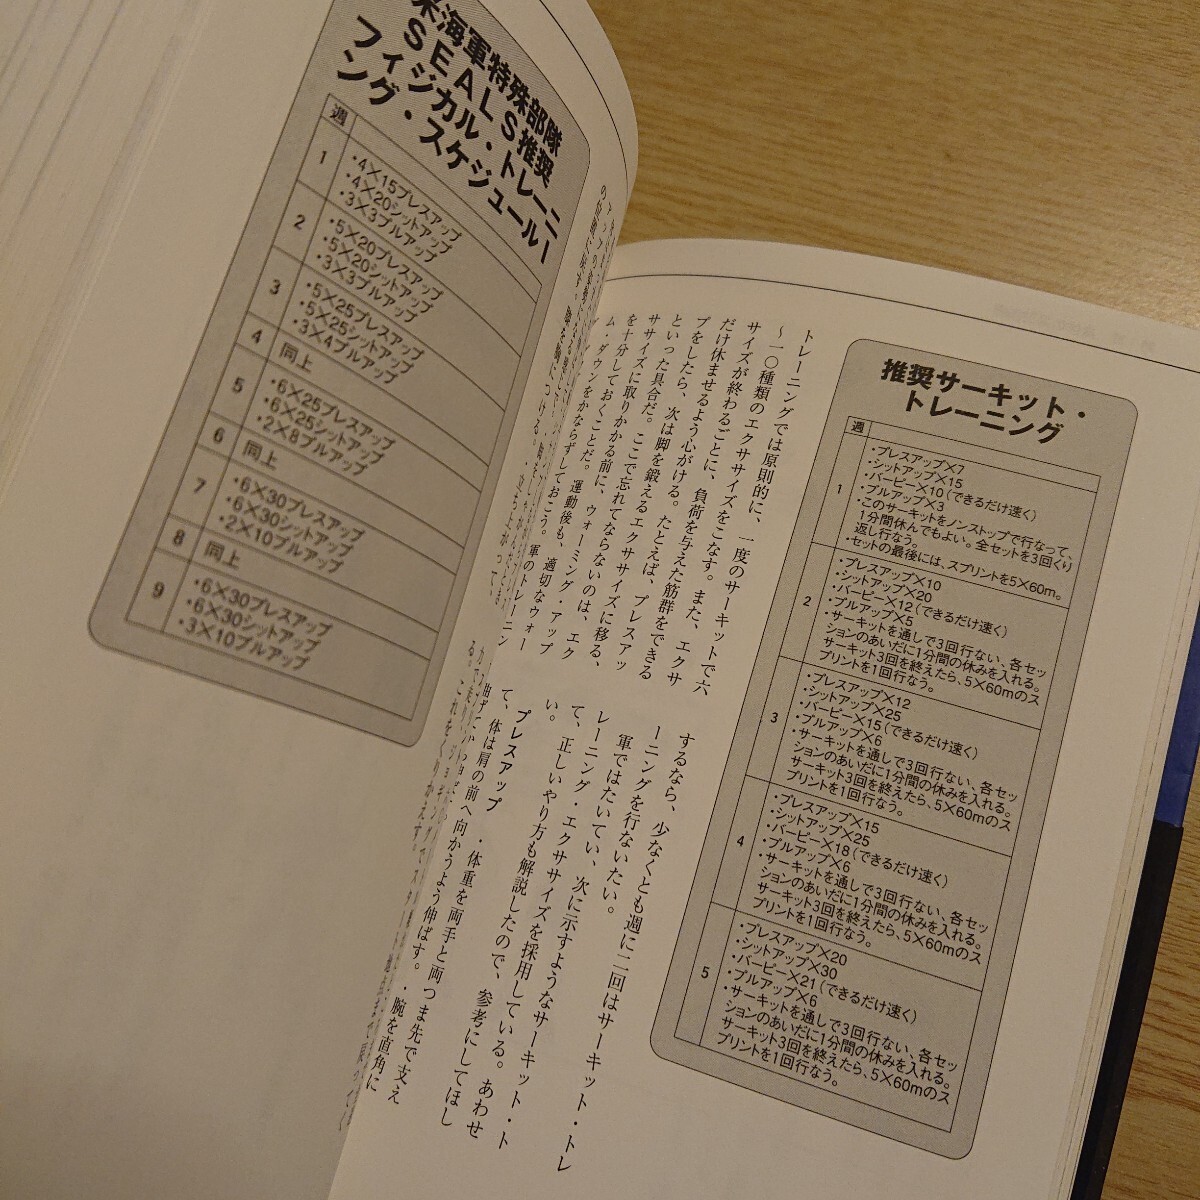 米海軍特殊部隊
SEALS推奨
フィジカル・トレーニ
ング・スケジュールー
週
1
・4×15プレスアップ
・4×20シットアップ
・3×3プルアップ
2
・5×20プレスアップ
・5×20シットアップ
・3×3プルアップ
3
・5×25プレスアップ
・5×25シットアップ
・3×4プルアップ
4
同上
5
・6×25プレスアップ
・6×25シットアップ
・2×8プルアップ
6
同上
7
・6×30プレスアップ
・6×30シットアップ
・2×10プルアップ
8
同上
9
・6×30プレスアップ
・6×30シットアップ
・3×10プルアップ
推奨サーキット・
トレーニング
週
1
・プレスアップ×7
・シットアップ×15
・バーピー×10(できるだけ速く)
・プルアップ×3
・このサーキットをノンストップで行なって、
1分間休んでもよい。全セットを3回くり
返し行なう。
・セットの最後には、スプリントを5×60m。
2
・プレスアップ×10
・シットアップ×20
・バーピー×12(できるだけ速く)
・プルアップ×5
・サーキットを通しで3回行ない、各セッ
ションのあいだに1分間の休みを入れる。
サーキット3回を終えたら、5×60mのス
プリントを1回行なう。
3
・プレスアップ×12
・シットアップ×25
・バーピー×15(できるだけ速く)
・プルアップ×6
・サーキットを通しで3回行ない、各セッ
ションのあいだに1分間の休みを入れる。
サーキット3回を終えたら、5×60mのス
プリントを1回行なう。
4
・プレスアップ×15
・シットアップ×25
・バーピー×18(できるだけ速く)
・プルアップ×6
・サーキットを通しで3回行ない、各セッ
ションのあいだに1分間の休みを入れる。
サーキット3回を終えたら、5×60mのス
プリントを1回行なう。
5
・プレスアップ×20
・シットアップ×30
・バーピー×21(できるだけ速く)
・プルアップ×6
・サーキットを通しで3回行ない、各セッ
ションのあいだに1分間の休みを入れる。
サーキット3回を終えたら、5×60mのス
プリントを1回行なう。
トレーニングでは原則的に、一度のサーキットで六
〜一〇種類のエクササイズをこなす。また、エクサ
サイズが終わるごとに、負荷を与えた筋群をできる
だけ休ませるよう心がける。たとえば、プレスアッ
プをしたら、次は脚を鍛えるエクササイズに移る、
といった具合だ。ここで忘れてならないのは、エク
ササイズに取りかかる前に、ウォーミング・アップ
を十分しておくことだ。運動後も、適切なウォー
ム・ダウンをかならずしておこう。軍のトレーニン
するなら、少なくとも週に二回はサーキット・トレ
ーニングを行ないたい。
軍ではたいてい、次に示すようなサーキット・ト
レーニング・エクササイズを採用している。あわせ
て、正しいやり方も解説したので、参考にしてほし
い。
プレスアップ ・体重を両手と両つま先で支え
て、体は肩の前へ向かうよう伸ばす。・腕を直角に